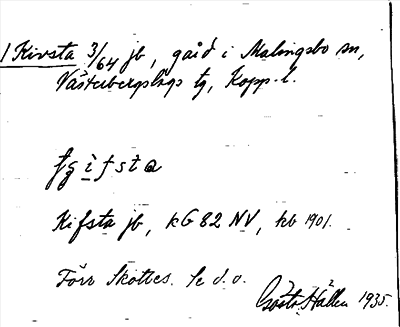 / Kivsta 3/64 jb, gård i Malingsbo sn,
Västerbergslags tg, Kopp. l.
Kifsta jb, kG 82 NV, kb 1901.
Förr Skottes. Se d. o.
Gösta Hallen 1935.